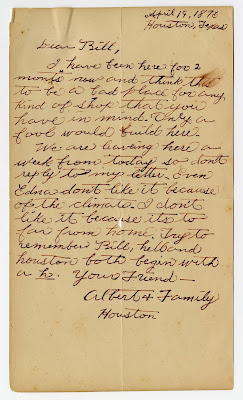 April 19, 1876
Houston, Texas
Dear Bill,
I have been here for 2
months now and think this
to be a bad place for any
kind of shop that you
have in mind. Only a
fool would build here.
We are leaving here a
week from today so don't
reply to my letter. Even
Edna don't like it because
of the climate. I don't
like it because its to
far from home. Try to
remember Bill, hell and
houston both begin with
a h. Your Friend—
Albert & Family
Houston